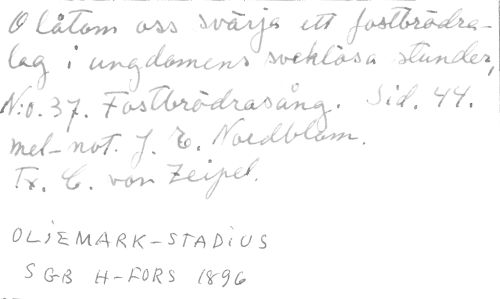 O låtom oss svärja ett fostbrödra-
lag i ungdomens sveklösa stunder,
N:o. 37. Fostbrödrasång. Sid. 44.
mel-not. J. E. Nordblom.
Tx. C. von Zeipel.
OLIEMARK-STADIUS
SGB H-FORS 1896